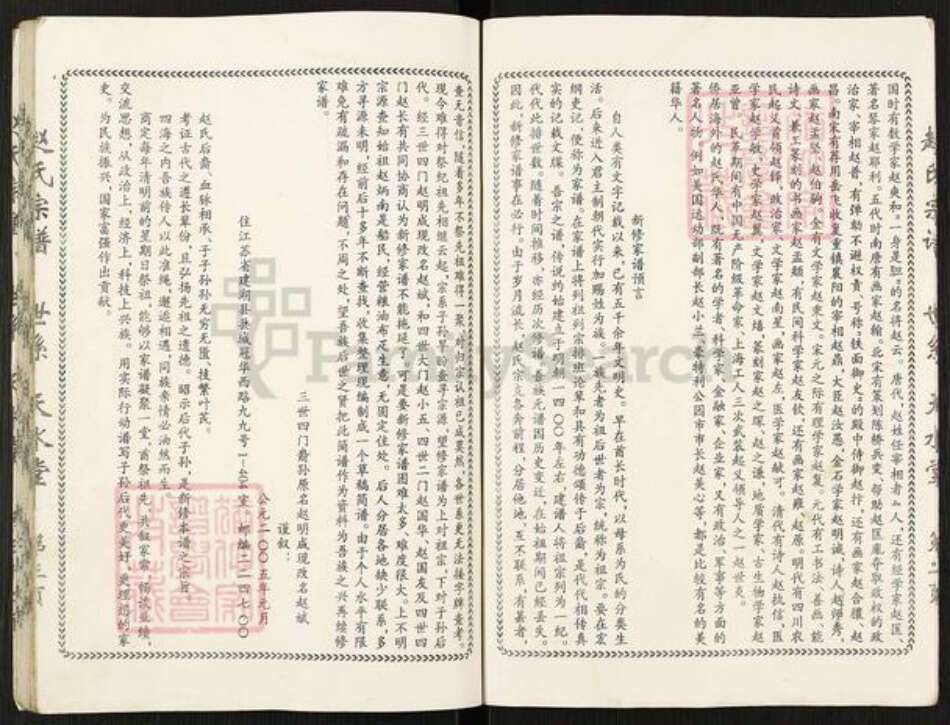 国时有数学家赵爽和。一身是胆。的名将赵云。唐代，赵姓任宰相者4人，还有经学家赵匡、
著名琴家赵耶利。五代时南唐有画家赵翰。北宋有策划陈桥兵变，帮助赵匡胤夺取政权的政
治家、宰相赵普，有弹劾不避权贵，号称。铁面御史。的殿中侍御赵抃，还有画家赵令穰、赵
昌。南宋有荐用岳飞收复重镇襄阳的宰相赵鼎，大臣赵汝愚，金石学家赵明诚，诗人赵师秀，
画家赵孟坚、赵伯驹。金有文学家赵秉文。宋元之际有理学家赵复。元代有工书法、善画、能
诗文、兼工篆刻的书画家赵孟頫，有民间科学家赵友钦，还有画家赵雍、赵原。明代有四川农
民起义首领赵铎，政治家、文学家赵南星，画家赵左，医学家赵献可。清代有诗人赵执信，医
学家赵学敏，史学家赵翼，文学家赵文楷，篆刻家赵之琛、赵之谦，地质学家、古生物学家赵
亚曾。民革期间有中国无产阶级革命家、上海工人三次武装起义领导人之一赵世炎。
侨居海外的赵氏华人，既有著名的学者、科学家、金融家、企业家，又有政治、军事等方面的
著名人物，例如美国运动部副部长赵小兰、蒙特利公园市市长赵美心等，都是比较有名的美
籍华人。
新修家谱预言
自人类有文字记载以来，已有五千余年文明史。早在酋长时代，以母系为氏的分类生
活。后来进入君主制朝代实行加赐姓为族。一族先者为祖后世者为宗，统称为祖宗。要在宏
纲史记，便称为家谱。在家谱上将列祖列宗排班论辈和具有功德颂传于后裔，是代代相传真
实的记载文牒。吾宗之谱，传说约始建立于明一四〇〇年左右，建谱人将祖宗列为一纪。
代代此接世数。随着时间推移，亦经历次修谱。吾族无谱因历史变迁，在始祖期间已经丢失。
因此，新修家谱事在必行。由于岁月流长，赵氏宗支各奔前程，分居他地，互不联系，有甚者，
查无音信，随着多年不祭先祖难得一聚，对归宗认祖已成莫然，各世系更无法接字牌查考。
现今难得对祭纪祖先相继云起，宗系子孙早盼查寻宗源，望修家谱为上对祖宗，下对于孙后
代。经三世四门赵明成现改名赵斌，和四世大门赵小五、四世二门赵国华、赵国友及四世四
门赵长有共同协商认为新修家谱不能拖延了，可是要新修家谱困难太多，难度很大。上不明
宗源查知始祖赵炳南是船民，经营粮油布疋生意，无固定住处。后人分居各地缺少联系，多
方寻源未明，经前后十多年不断查找，收集整理现编制成一个草稿简谱。由于个人水平有限
难免有疏漏和存在问题，不周之处，望吾族后世之贤把此简谱作为资料为吾族之兴再续修
家谱。
三世四门裔孙原名赵明成现改名赵斌
谨叙：
住江苏省建湖县县城冠华西路九九号1-404室 邮编二二四七〇〇
公元二〇〇五年元月
赵氏后裔，血脉相承、子子孙孙无穷无匮，技繁叶茂。
考证古代之遵长辈份，且弘扬先祖之遗德。昭示后代子孙，是新修本谱之宗旨。
四海之内吾族传人以此准绳，邂逅相遇，同族亲情必油然而生。
商定每年清明前的星期日祭祖，能够以家谱凝聚一堂，首祭祖先，共叙家常，畅谈业绩，
交流思想，从政治上，经济上，科技上兴族。用实际行动谱写子孙后代更美好，更理想的家
史。为民族振兴、国家富强作出贡献。
赵氏宗谱 世系 天水堂 第三页
FamilySearch